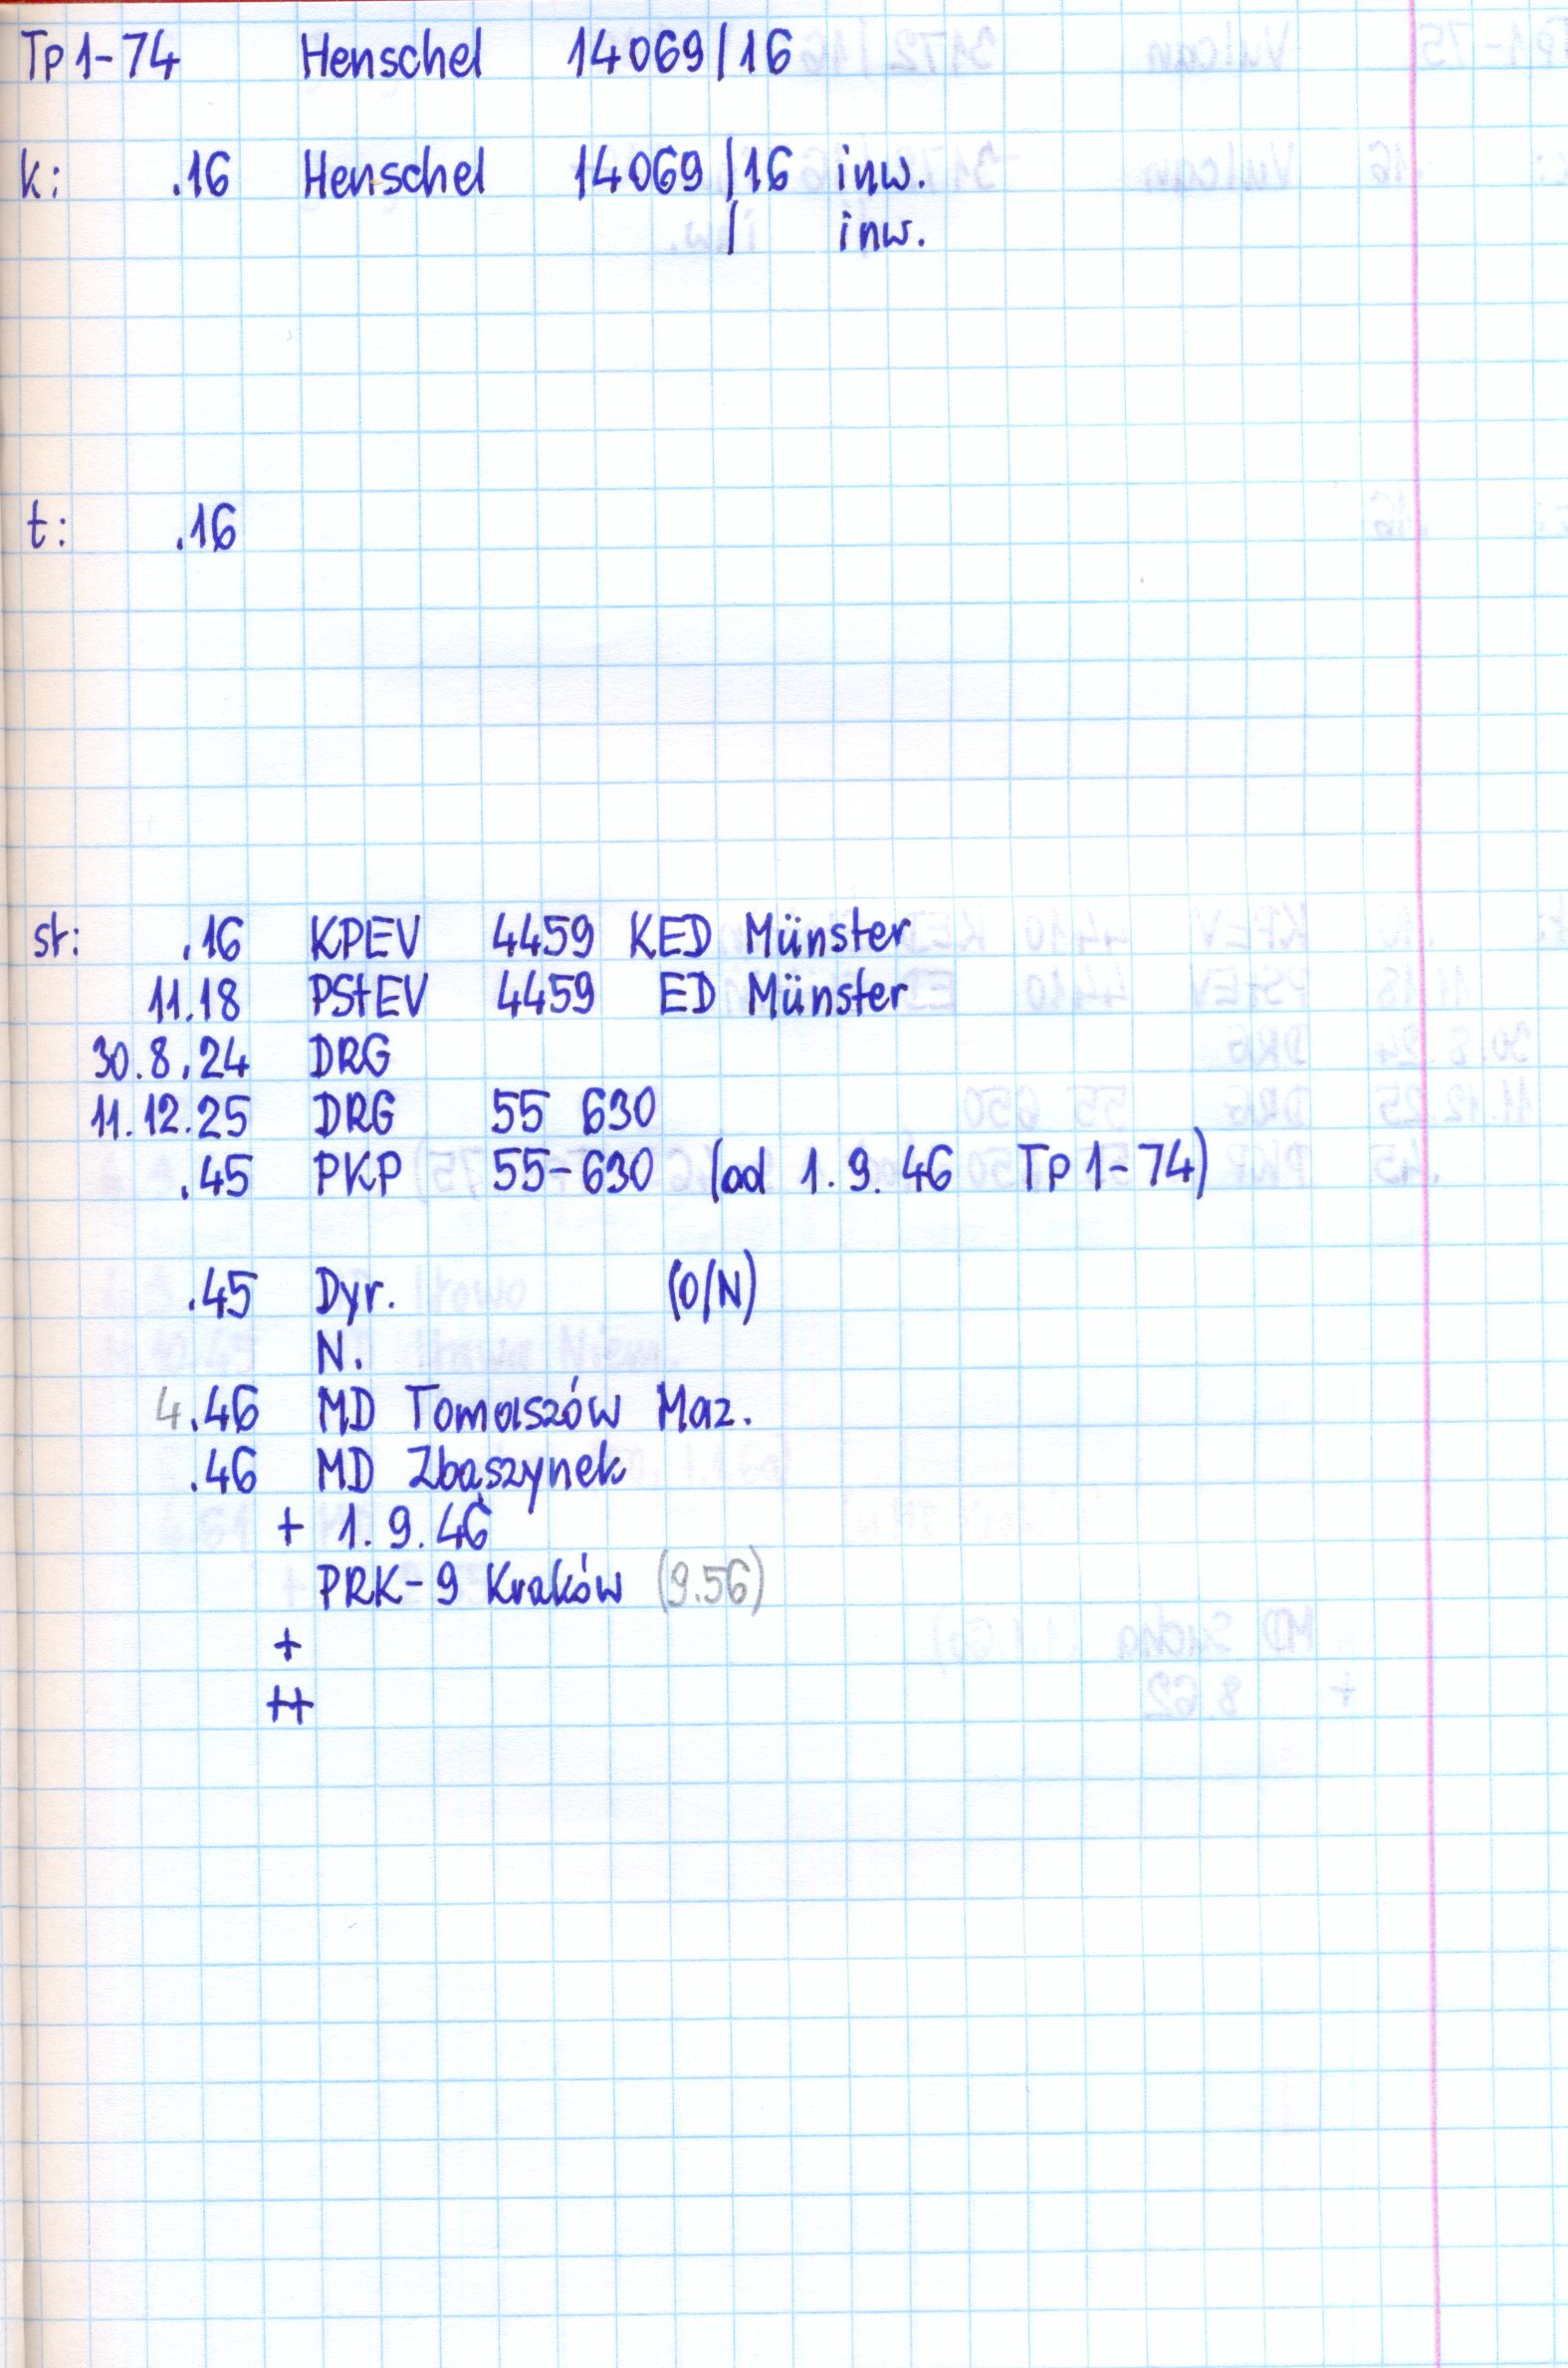 Tp1-74 Henschel 14069/16
k: .16 Henschel 14069/16 inw.
/ inw.
t: .16
st: .16 KPEV 4459 KED Münster
11.18 PStEV 4459 ED Münster
30.8.24 DRG
11.12.25 DRG 55 630
.45 PKP 55-630 (od 1.9.46 Tp1-74)
.45 Dyr. (O/N)
N.
4.46 MD Tomaszów Maz.
.46 MD Zbąszynek
+ 1.9.46
PRK-9 Kraków (9.56)
+
++